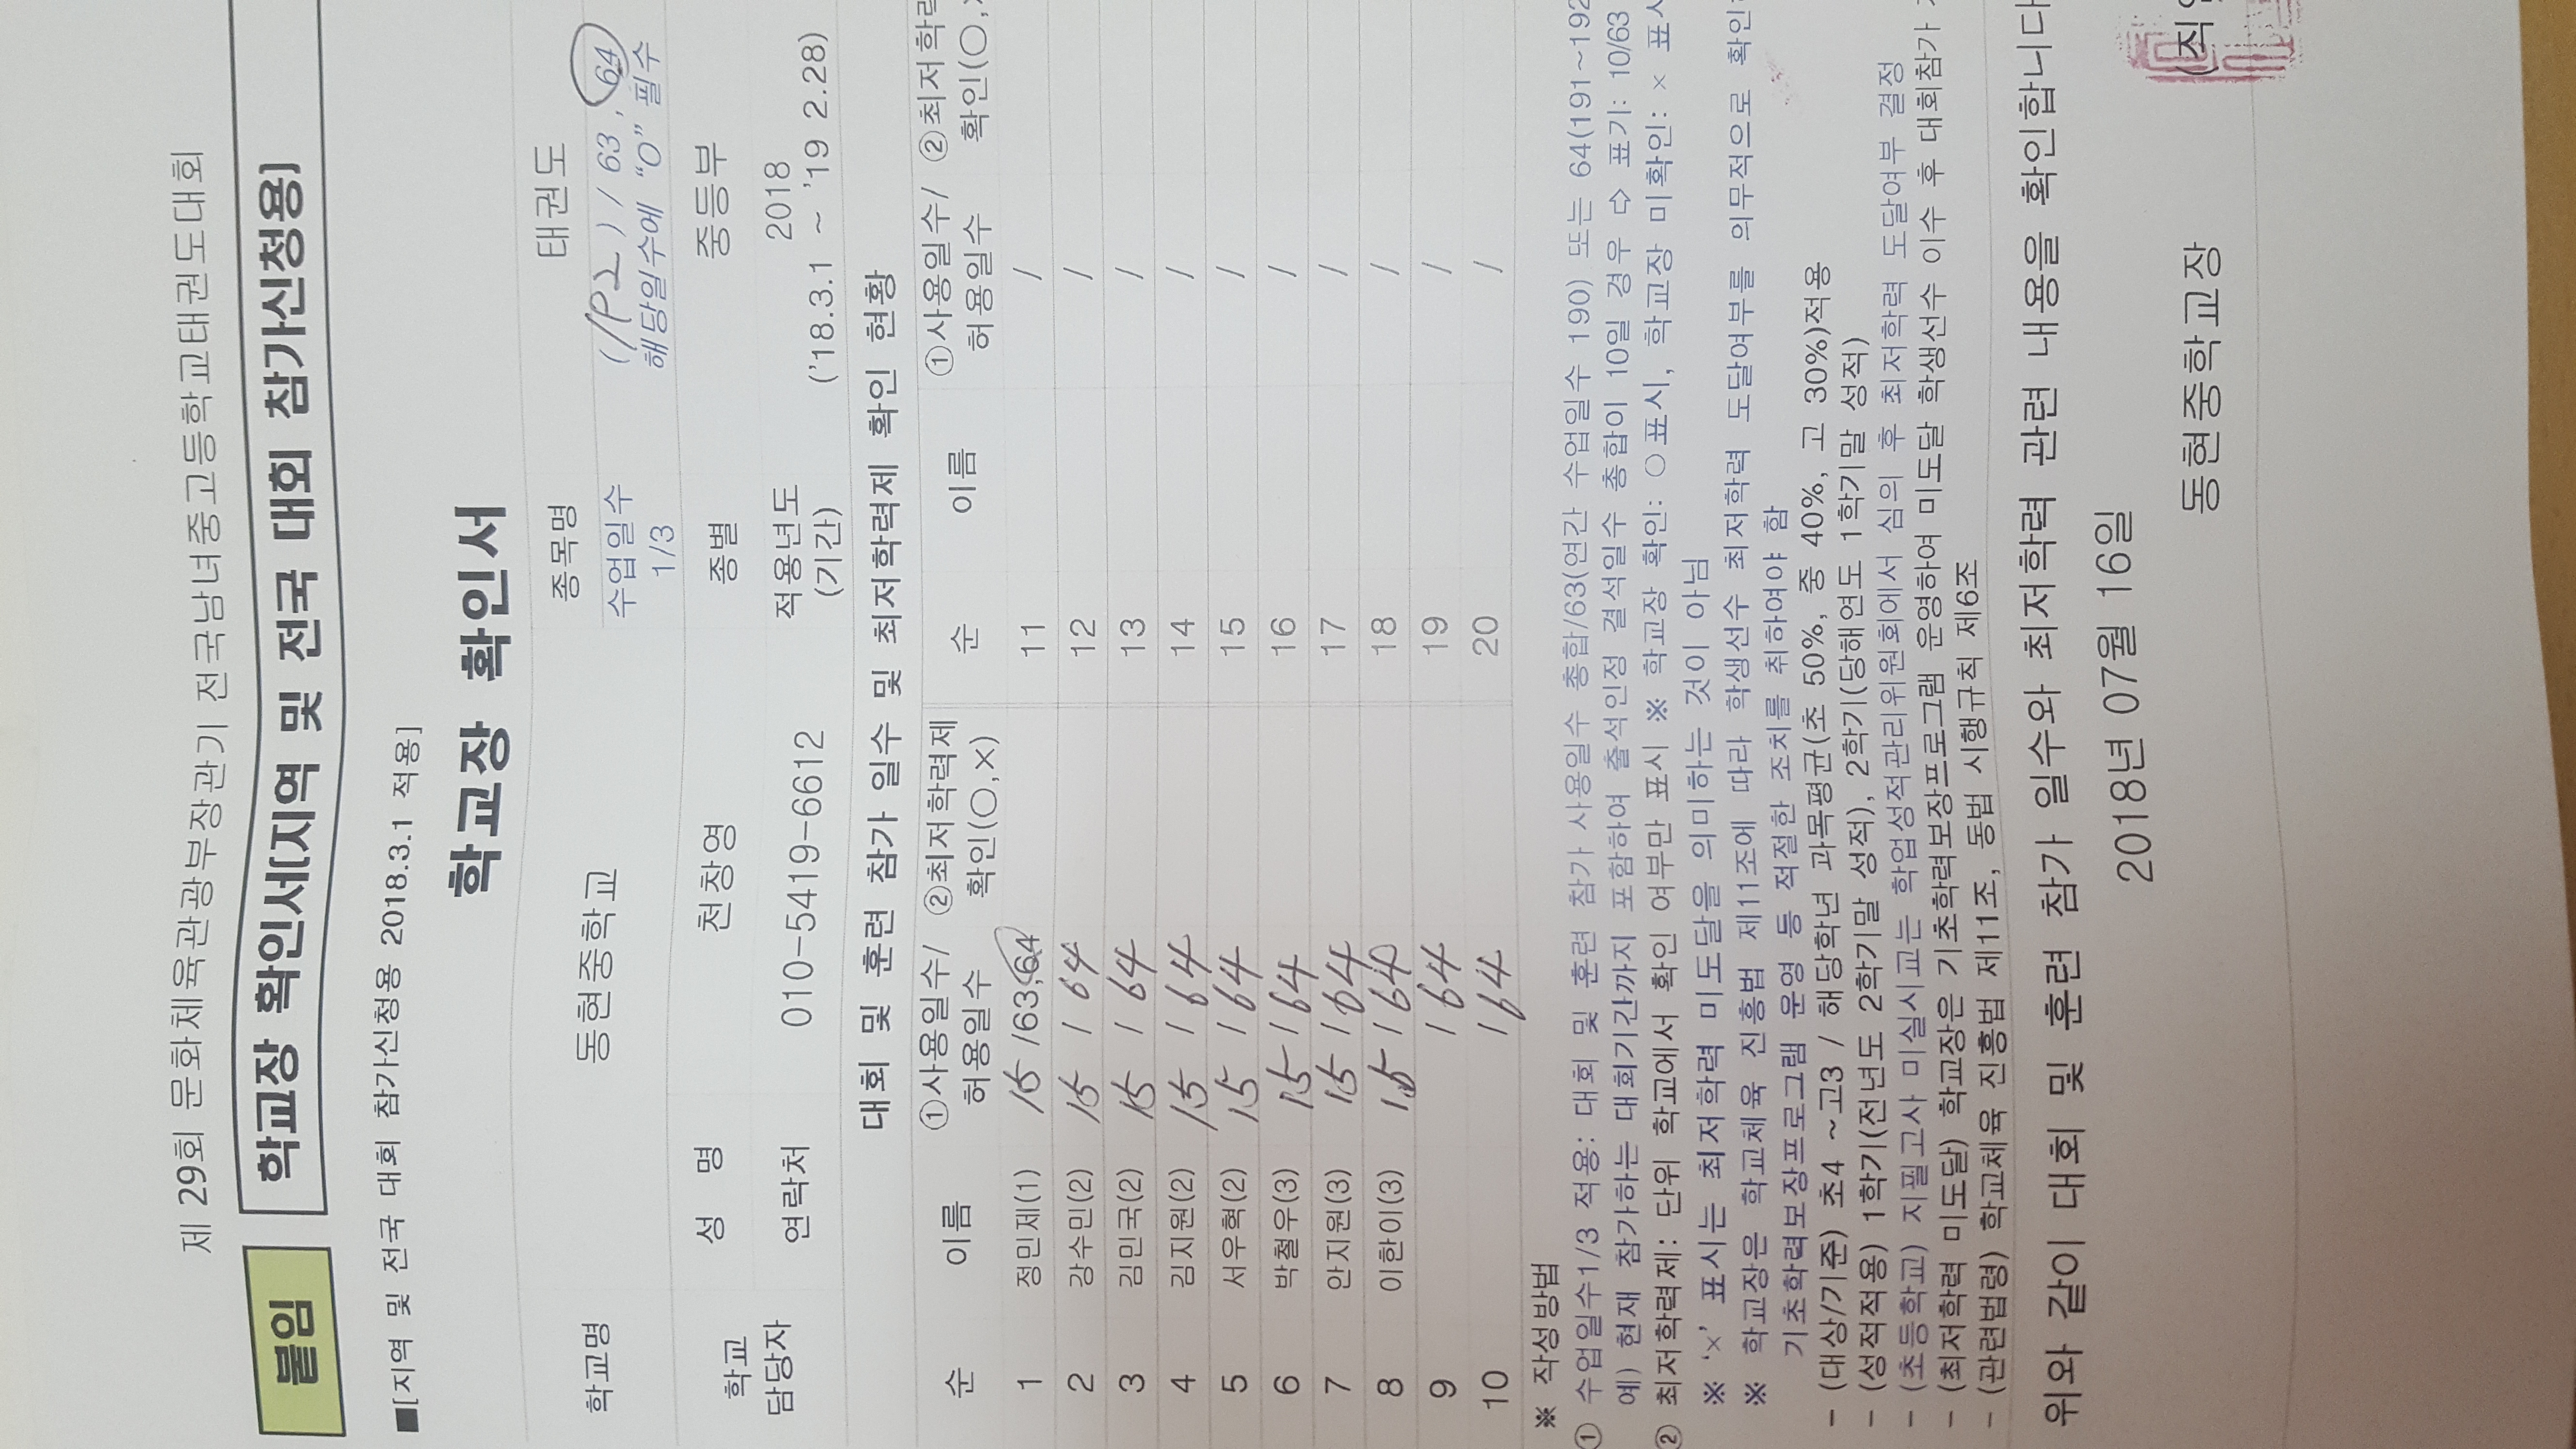 제 29회 문화체육관광부장관기 전국남녀중고등학교태권도대회
붙임 학교장 확인서[지역 및 전국 대회 참가신청용]
■[지역 및 전국 대회 참가신청용 2018.3.1 적용]
학교장 확인서
학교명 동현중학교 종목명 태권도
수업일수 1/3 ( ) / 63 , 64
해당일수에 "O" 필수
학교 담당자 성 명 천창영 종별 중등부
연락처 010-5419-6612 적용년도 (기간) 2018 ('18.3.1 ~ '19 2.28)
대회 및 훈련 참가 일수 및 최저학력제 확인 현황
순 이름 ①사용일수/ 허용일수 ②최저학력제 확인(○,×) 순 이름 ①사용일수/ 허용일수 ②최저학력 확인(○,×
1 정민제(1) 15 /63,64 11 /
2 강수민(2) 15 / 64 12 /
3 김민국(2) 15 / 64 13 /
4 김지원(2) 15 / 64 14 /
5 서우혁(2) 15 / 64 15 /
6 박철우(3) 15 / 64 16 /
7 안지원(3) 15 / 64 17 /
8 이한이(3) 15 / 64 18 /
9 / 64 19 /
10 / 64 20 /
※ 작성방법
① 수업일수1/3 적용: 대회 및 훈련 참가 사용일수 총합/63(연간 수업일수 190) 또는 64(191~192
예) 현재 참가하는 대회기간까지 포함하여 출석인정 결석일수 총합이 10일 경우 ⇨ 표기: 10/63
② 최저학력제: 단위 학교에서 확인 여부만 표시 ※ 학교장 확인: ○표시, 학교장 미확인: × 표시
※ '×' 표시는 최저학력 미도달을 의미하는 것이 아님
※ 학교장은 학교체육 진흥법 제11조에 따라 학생선수 최저학력 도달여부를 의무적으로 확인
기초학력보장프로그램 운영 등 적절한 조치를 취하여야 함
- (대상/기준) 초4 ~고3 / 해당학년 과목평균(초 50%, 중 40%, 고 30%)적용
- (성적적용) 1학기(전년도 2학기말 성적), 2학기(당해연도 1학기말 성적)
- (초등학교) 지필고사 미실시교는 학업성적관리위원회에서 심의 후 최저학력 도달여부 결정
- (최저학력 미도달) 학교장은 기초학력보장프로그램 운영하여 미도달 학생선수 이수 후 대회참가
- (관련법령) 학교체육 진흥법 제11조, 동법 시행규칙 제6조
위와 같이 대회 및 훈련 참가 일수와 최저학력 관련 내용을 확인합니다
2018년 07월 16일
동현중학교장 (직인